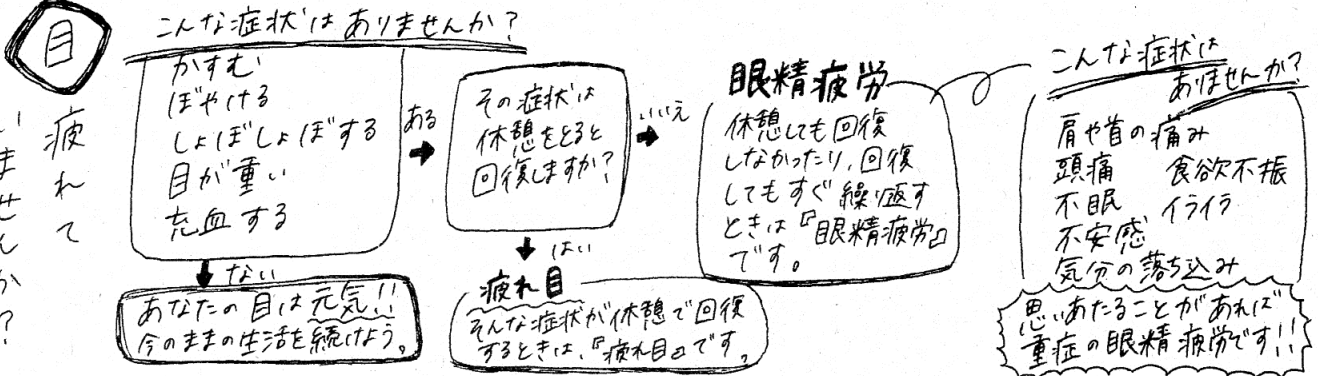 目
疲れて
いませんか?
こんな症状はありませんか?
かすむ
ぼやける
しょぼしょぼする
目が重い
充血する
ある
ない
あなたの目は元気!!
今のままの生活を続けよう。
その症状は
休憩をとると
回復しますか?
いいえ
はい
疲れ目
そんな症状が休憩で回復
するときは、『疲れ目』です。
眼精疲労
休憩しても回復
しなかったり、回復
してもすぐ繰り返す
ときは『眼精疲労』
です。
こんな症状は
ありませんか?
肩や首の痛み
頭痛 食欲不振
不眠 イライラ
不安感
気分の落ち込み
思いあたることがあれば
重症の眼精疲労です!!